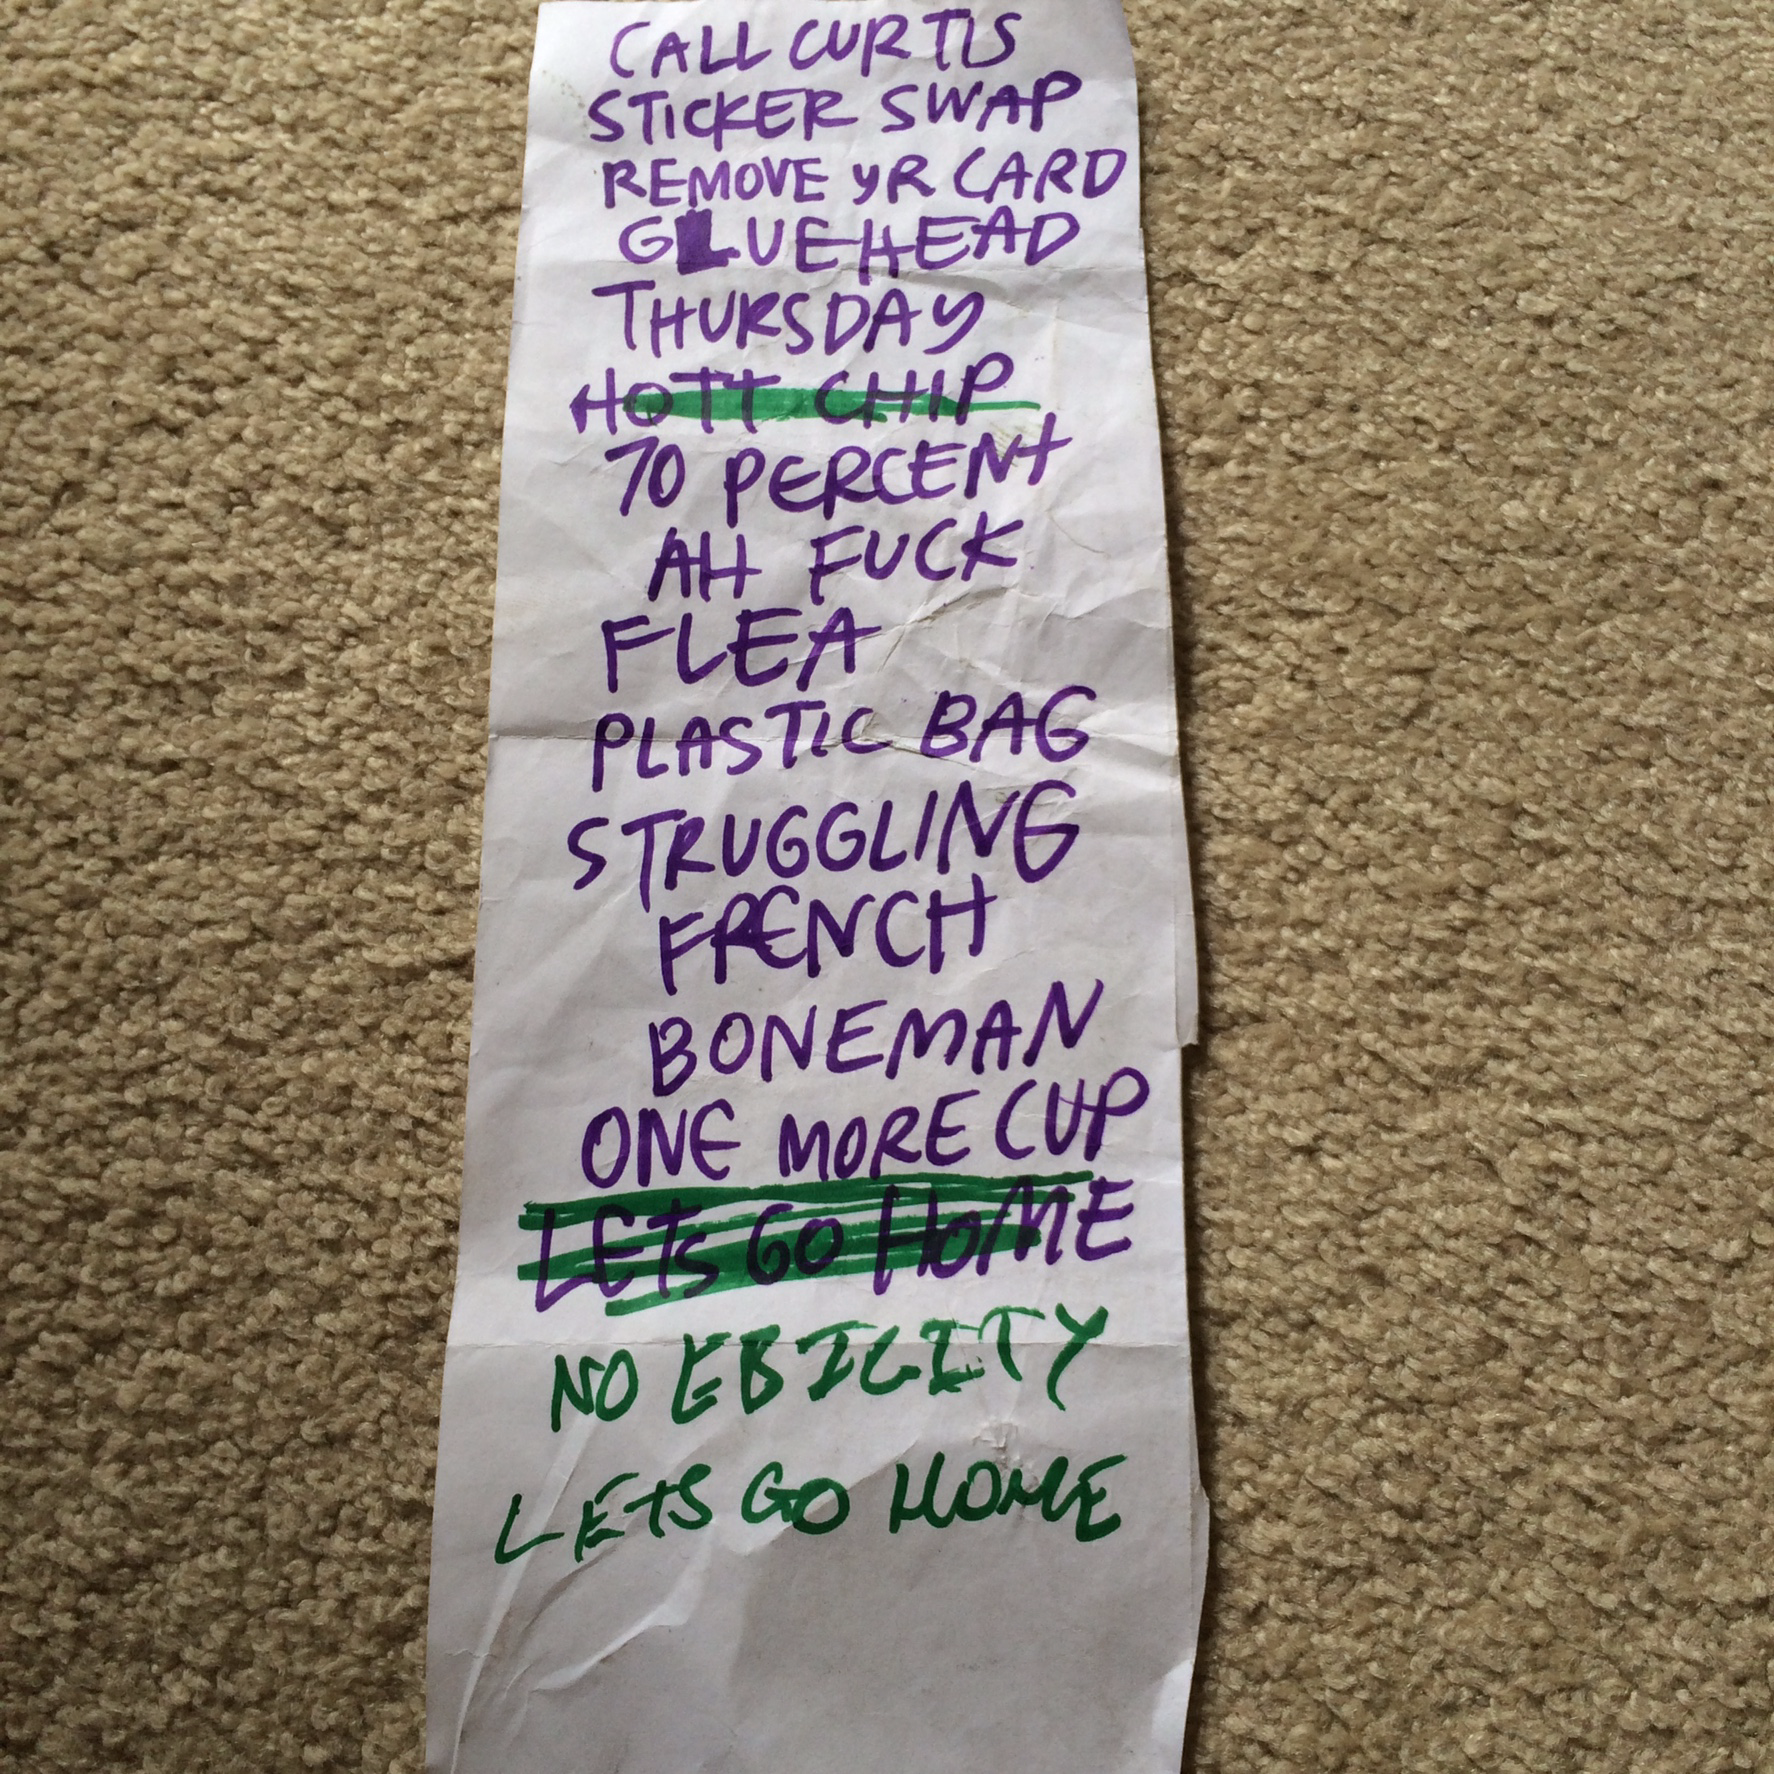 CALL CURTIS
STICKER SWAP
REMOVE YR CARD
GLUEHEAD
THURSDAY
HOTT CHIP
70 PERCENT
AH FUCK
FLEA
PLASTIC BAG
STRUGGLING
FRENCH
BONEMAN
ONE MORE CUP
LETS GO HOME
NO EBILITY
LETS GO HOME